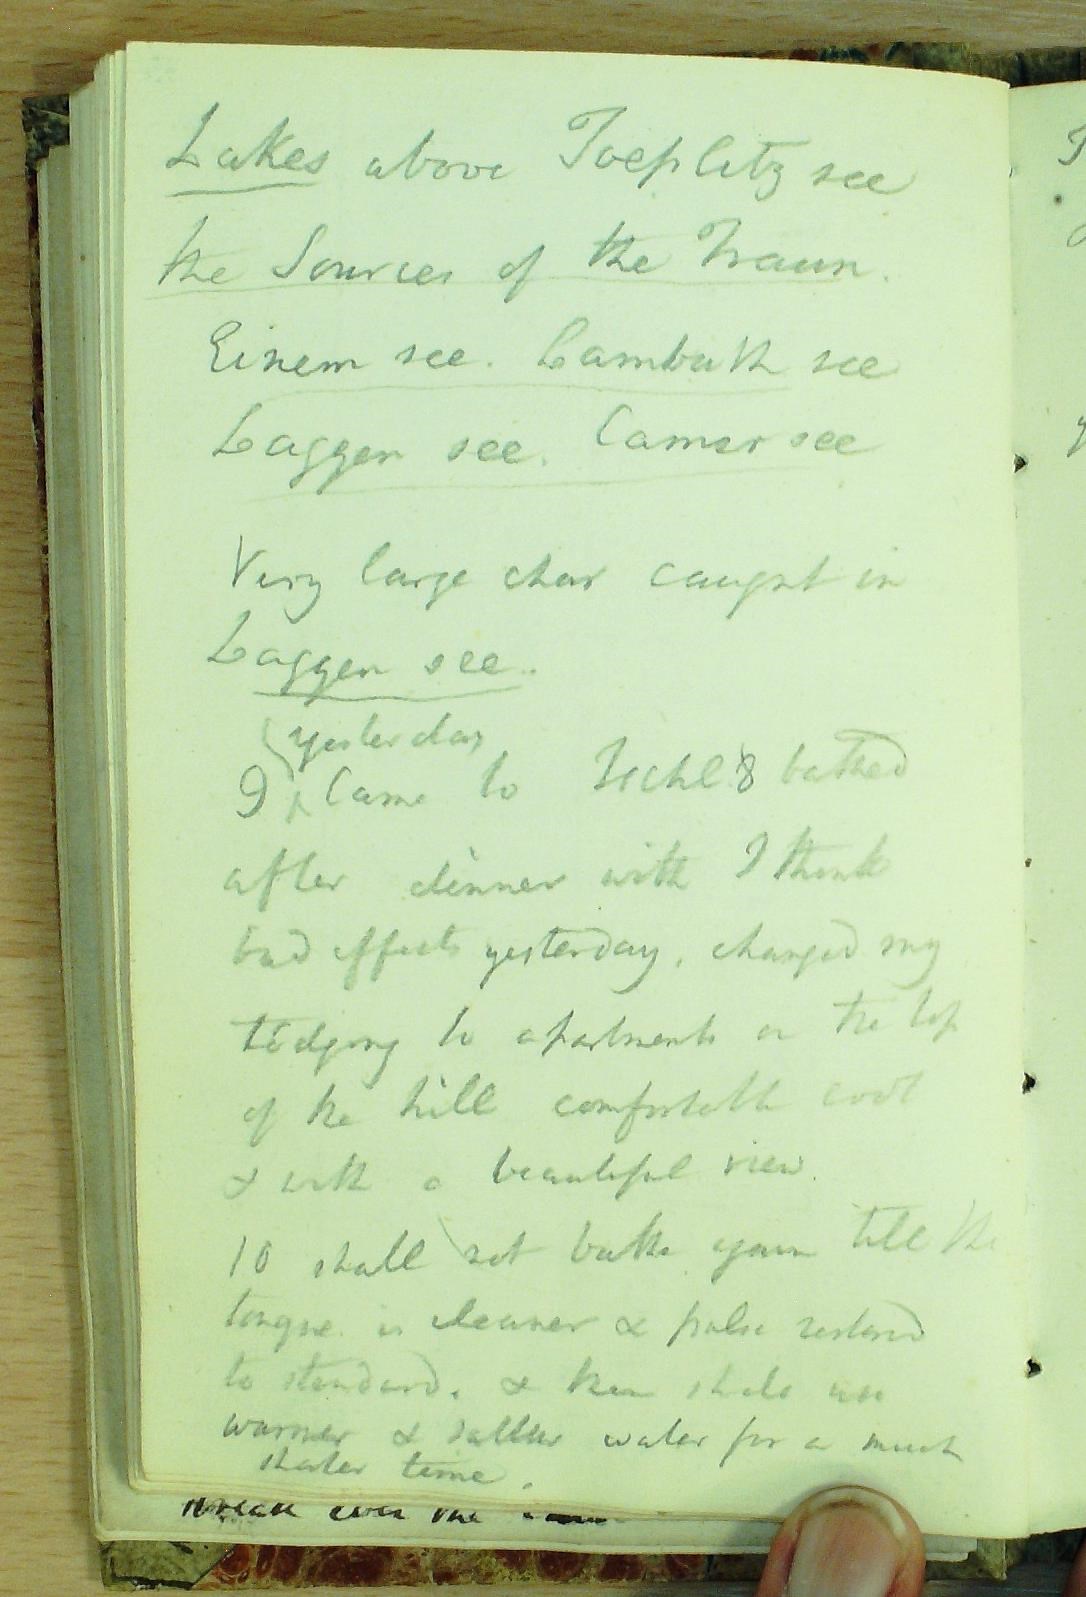 Lakes above Toeplitz see
the Sources of the Traun.
Einem see. Lambath see
Laggen see. Camer see
Very large char caught in
Laggen see.
yesterday
9 Came to Ischl & bathed
after dinner with I think
bad effects yesterday, changed my
lodging to apartments on the top
of the hill comfortable cool
& with a beautiful view.
10 shall not bathe again till the
tongue is cleaner & pulse restored
to standard. & then shall use
warmer & saltier water for a much
shorter time.
over the